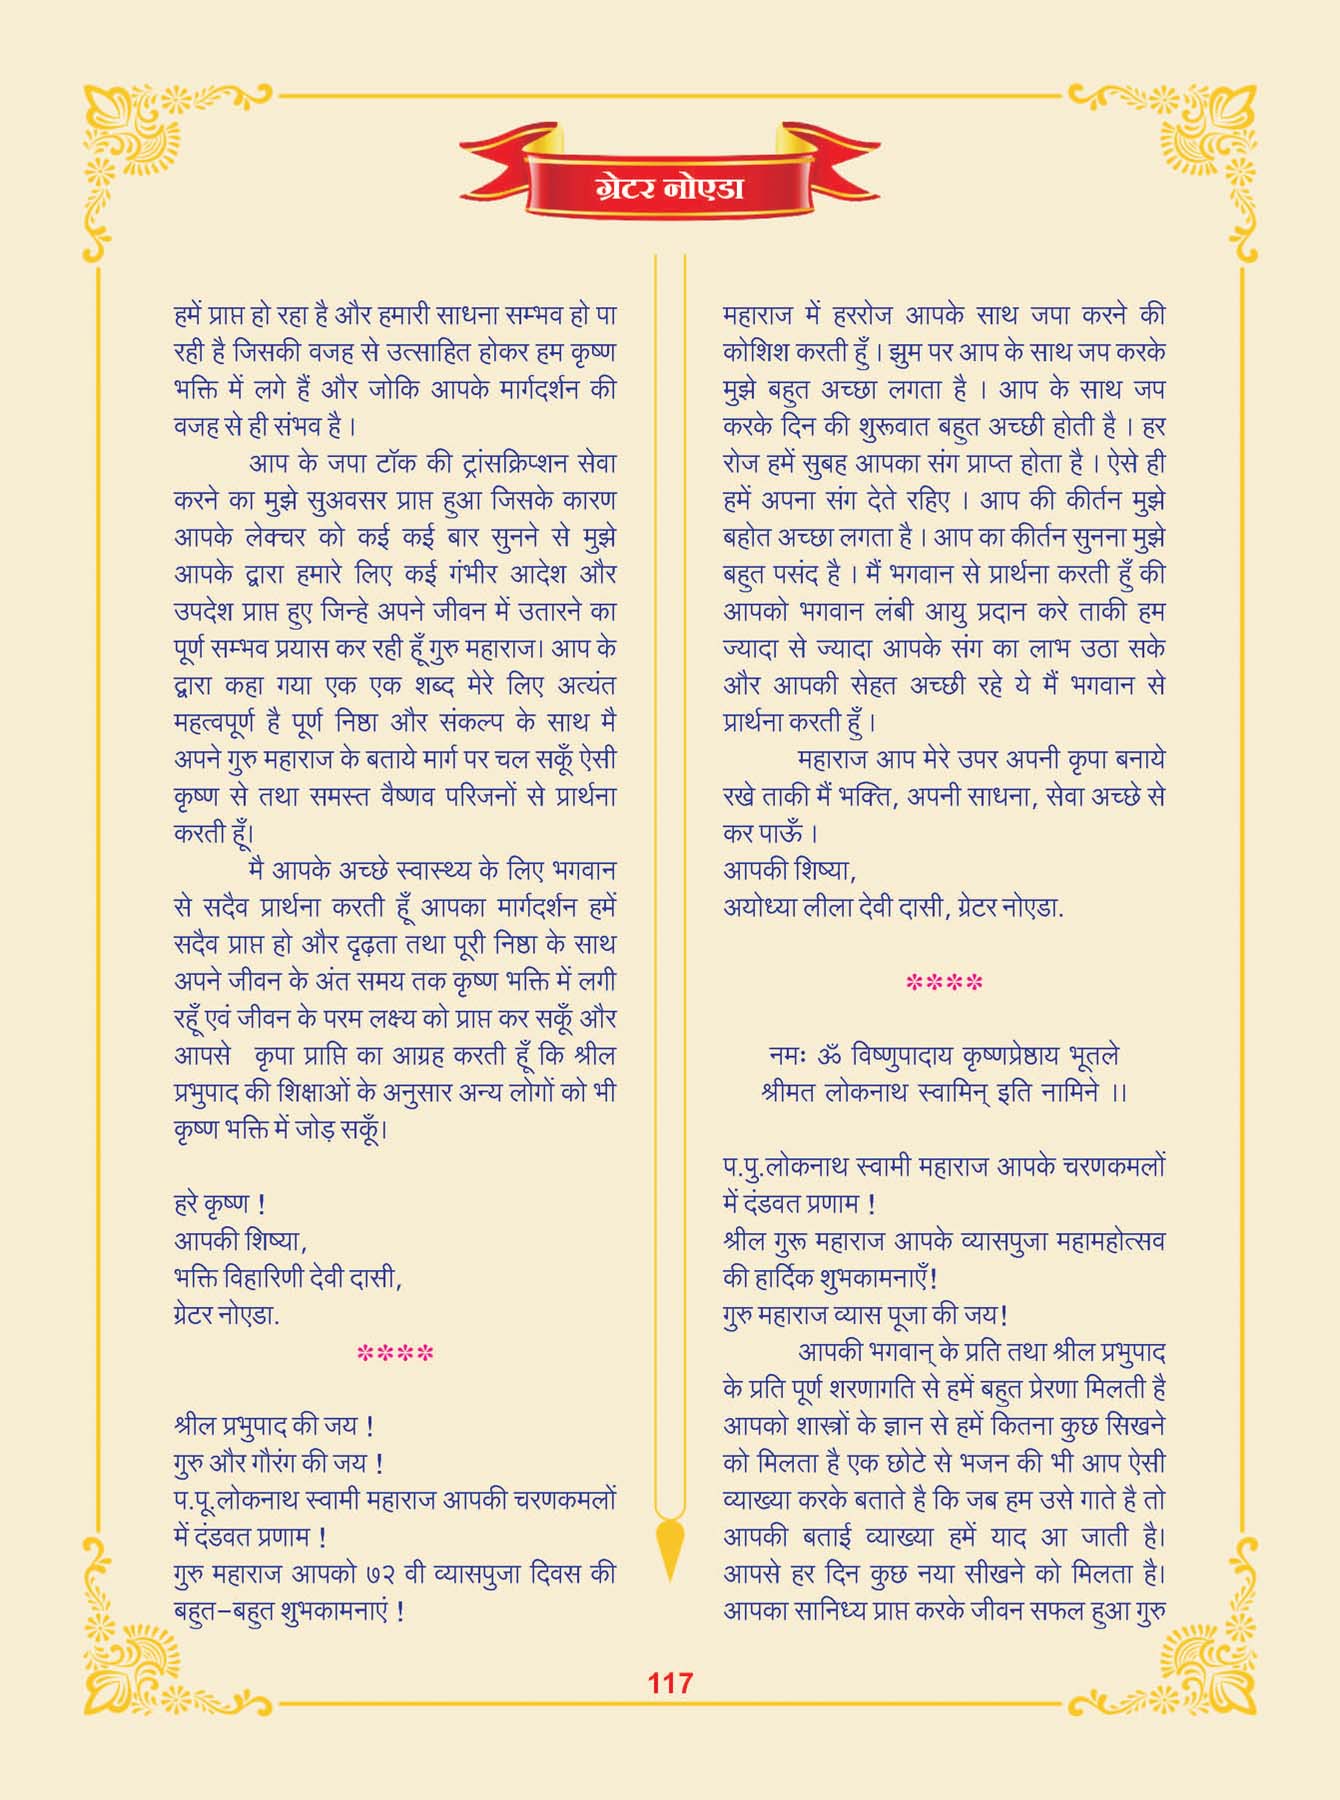 ग्रेटर नोएडा
हमें प्राप्त हो रहा है और हमारी साधना सम्भव हो पा
रही है जिसकी वजह से उत्साहित होकर हम कृष्ण
भक्ति में लगे हैं और जोकि आपके मार्गदर्शन की
वजह से ही संभव है ।
आप के जपा टॉक की ट्रांसक्रिप्शन सेवा
करने का मुझे सुअवसर प्राप्त हुआ जिसके कारण
आपके लेक्चर को कई कई बार सुनने से मुझे
आपके द्वारा हमारे लिए कई गंभीर आदेश और
उपदेश प्राप्त हुए जिन्हे अपने जीवन में उतारने का
पूर्ण सम्भव प्रयास कर रही हूँ गुरु महाराज। आप के
द्वारा कहा गया एक एक शब्द मेरे लिए अत्यंत
महत्वपूर्ण है पूर्ण निष्ठा और संकल्प के साथ मै
अपने गुरु महाराज के बताये मार्ग पर चल सकूँ ऐसी
कृष्ण से तथा समस्त वैष्णव परिजनों से प्रार्थना
करती हूँ।
मै आपके अच्छे स्वास्थ्य के लिए भगवान
से सदैव प्रार्थना करती हूँ आपका मार्गदर्शन हमें
सदैव प्राप्त हो और दृढ़ता तथा पूरी निष्ठा के साथ
अपने जीवन के अंत समय तक कृष्ण भक्ति में लगी
रहूँ एवं जीवन के परम लक्ष्य को प्राप्त कर सकूँ और
आपसे कृपा प्राप्ति का आग्रह करती हूँ कि श्रील
प्रभुपाद की शिक्षाओं के अनुसार अन्य लोगों को भी
कृष्ण भक्ति में जोड़ सकूँ।
हरे कृष्ण !
आपकी शिष्या,
भक्ति विहारिणी देवी दासी,
ग्रेटर नोएडा.
****
श्रील प्रभुपाद की जय !
गुरु और गौरंग की जय !
प.पू.लोकनाथ स्वामी महाराज आपकी चरणकमलों
में दंडवत प्रणाम !
गुरु महाराज आपको ७२ वी व्यासपुजा दिवस की
बहुत-बहुत शुभकामनाएं !
महाराज में हररोज आपके साथ जपा करने की
कोशिश करती हूँ । झुम पर आप के साथ जप करके
मुझे बहुत अच्छा लगता है । आप के साथ जप
करके दिन की शुरूवात बहुत अच्छी होती है । हर
रोज हमें सुबह आपका संग प्राप्त होता है । ऐसे ही
हमें अपना संग देते रहिए । आप की कीर्तन मुझे
बहोत अच्छा लगता है । आप का कीर्तन सुनना मुझे
बहुत पसंद है । मैं भगवान से प्रार्थना करती हुँ की
आपको भगवान लंबी आयु प्रदान करे ताकी हम
ज्यादा से ज्यादा आपके संग का लाभ उठा सके
और आपकी सेहत अच्छी रहे ये मैं भगवान से
प्रार्थना करती हुँ ।
महाराज आप मेरे उपर अपनी कृपा बनाये
रखे ताकी मैं भक्ति, अपनी साधना, सेवा अच्छे से
कर पाऊँ ।
आपकी शिष्या,
अयोध्या लीला देवी दासी, ग्रेटर नोएडा.
****
नमः ॐ विष्णुपादाय कृष्णप्रेष्ठाय भूतले
श्रीमत लोकनाथ स्वामिन् इति नामिने ।।
प.पु.लोकनाथ स्वामी महाराज आपके चरणकमलों
में दंडवत प्रणाम !
श्रील गुरू महाराज आपके व्यासपुजा महामहोत्सव
की हार्दिक शुभकामनाएँ!
गुरु महाराज व्यास पूजा की जय!
आपकी भगवान् के प्रति तथा श्रील प्रभुपाद
के प्रति पूर्ण शरणागति से हमें बहुत प्रेरणा मिलती है
आपको शास्त्रों के ज्ञान से हमें कितना कुछ सिखने
को मिलता है एक छोटे से भजन की भी आप ऐसी
व्याख्या करके बताते है कि जब हम उसे गाते है तो
आपकी बताई व्याख्या हमें याद आ जाती है।
आपसे हर दिन कुछ नया सीखने को मिलता है।
आपका सानिध्य प्राप्त करके जीवन सफल हुआ गुरु
117